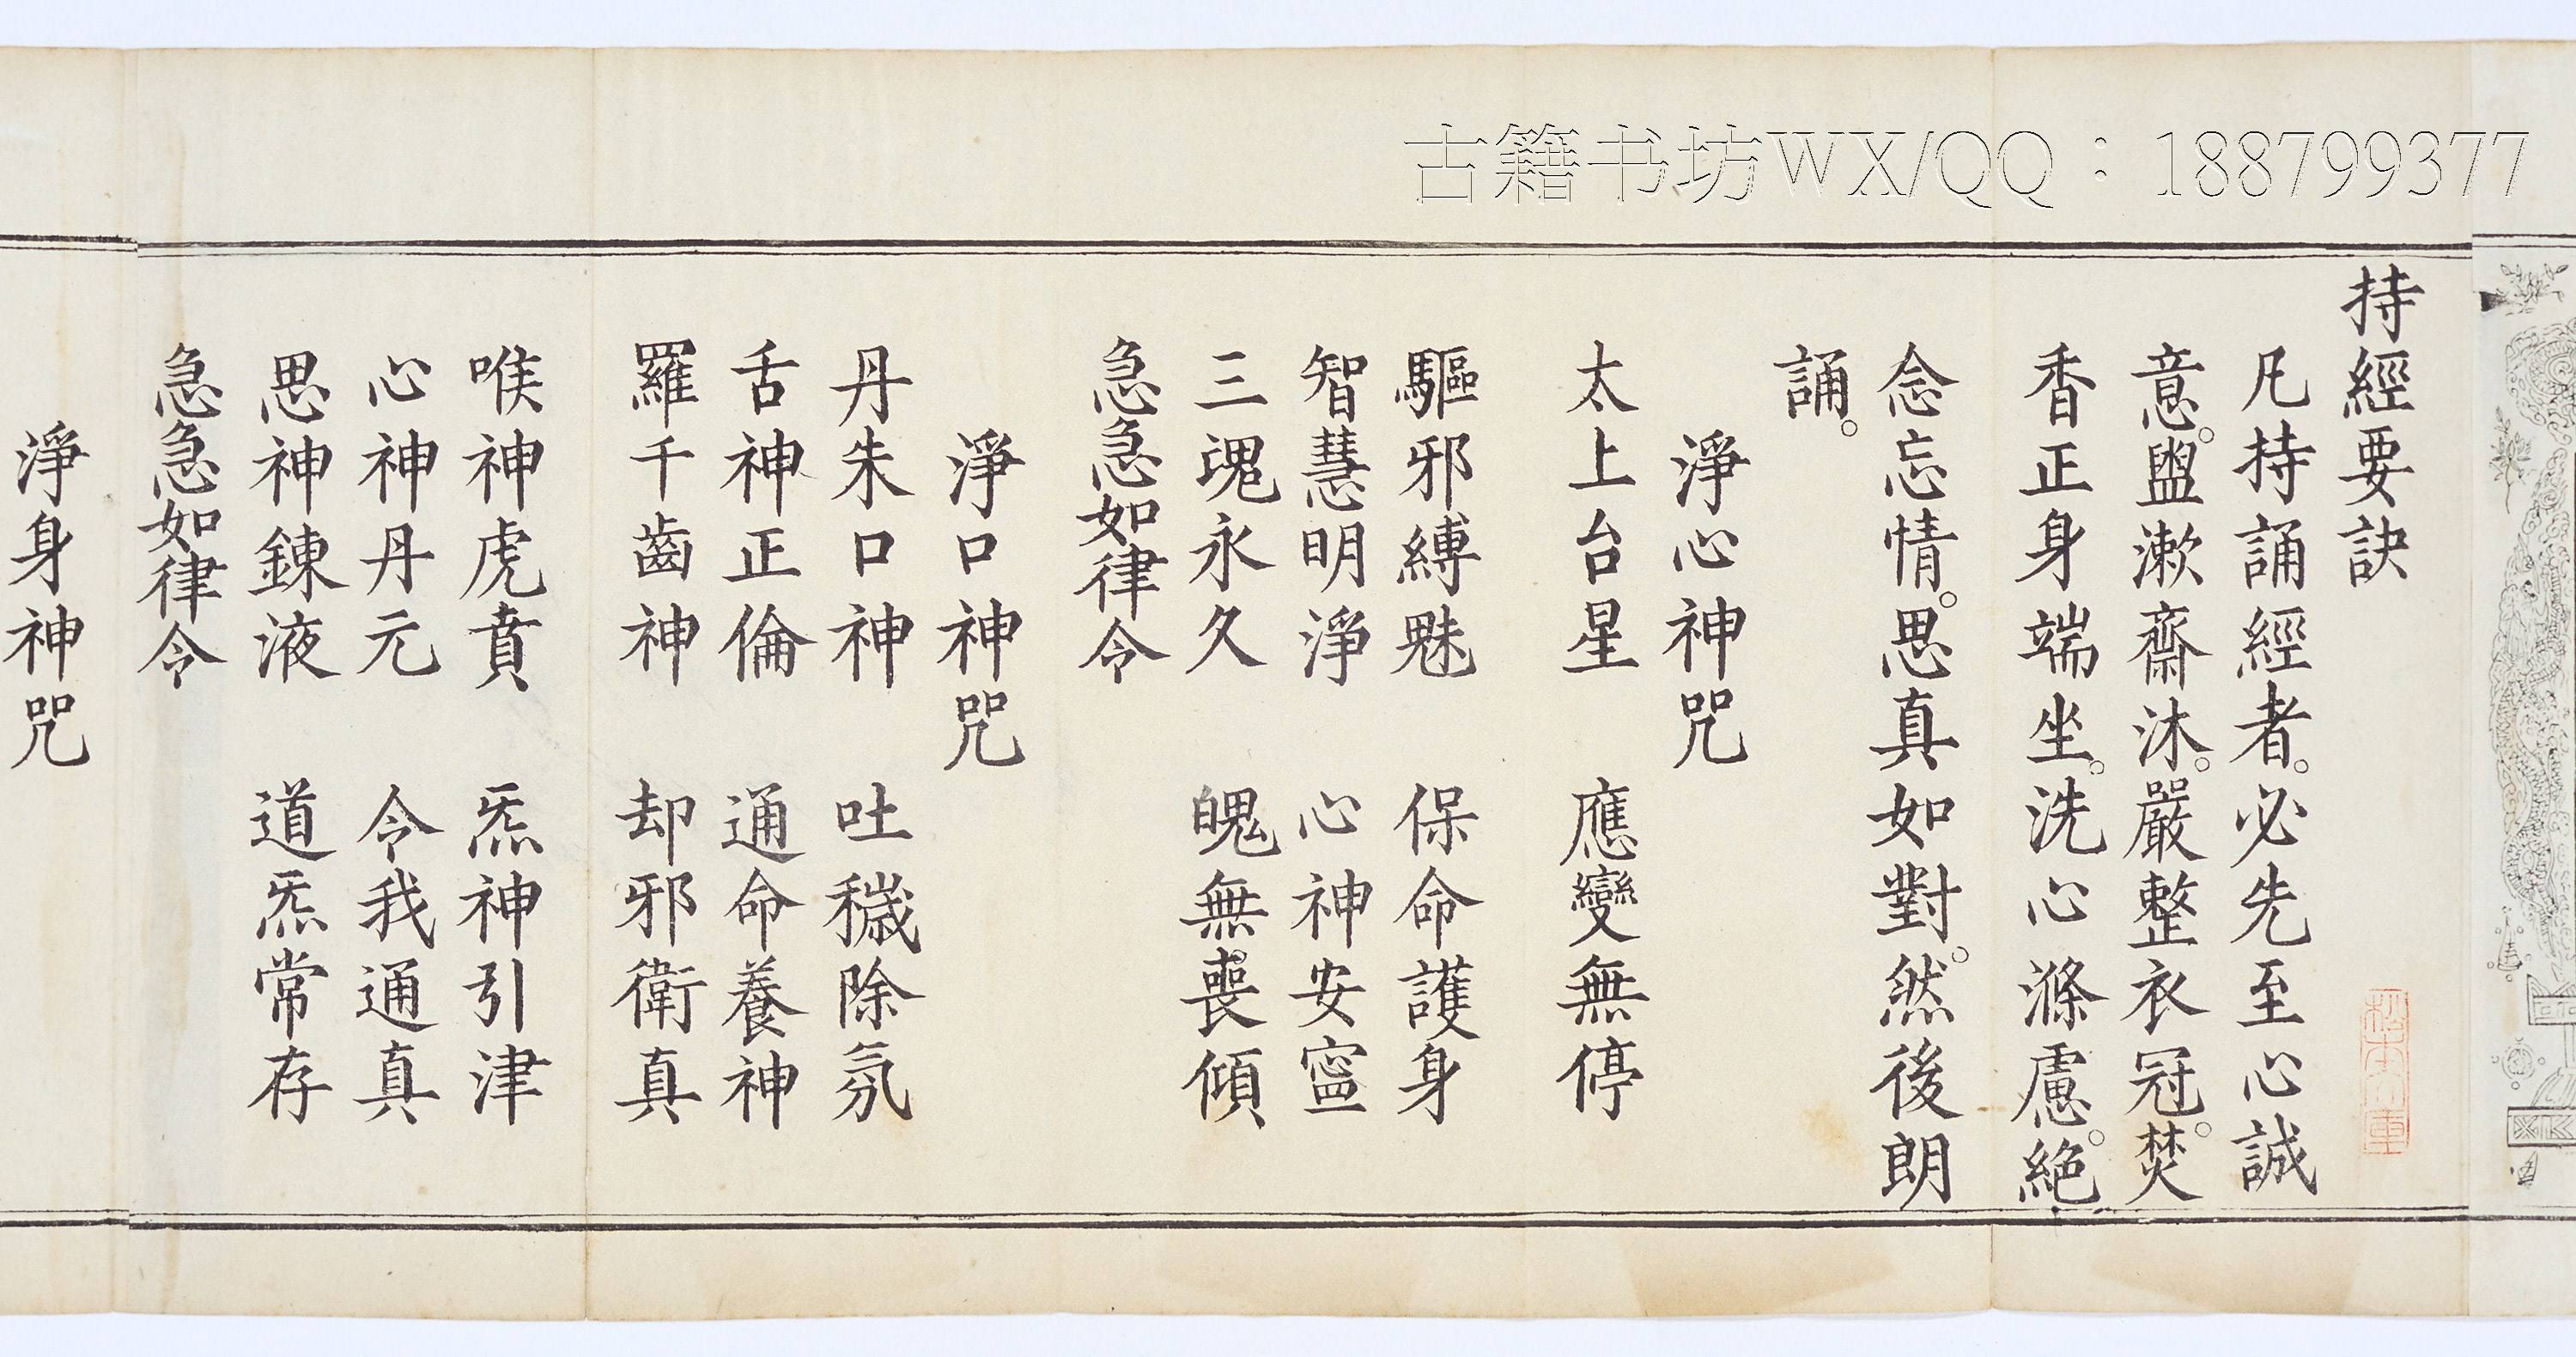 古籍书坊WX/QQ：188799377
持經要訣
凡持誦經者。必先至心誠
意。盥漱齋沐。嚴整衣冠。焚
香正身端坐。洗心滌慮。絕
念忘情。思真如對。然後朗
誦。
淨心神咒
太上台星　應變無停
驅邪縛魅　保命護身
智慧明淨　心神安寧
三魂永久　魄無喪傾
急急如律令
淨口神咒
丹朱口神　吐穢除氛
舌神正倫　通命養神
羅千齒神　却邪衛真
喉神虎賁　炁神引津
心神丹元　令我通真
思神鍊液　道炁常存
急急如律令
淨身神咒